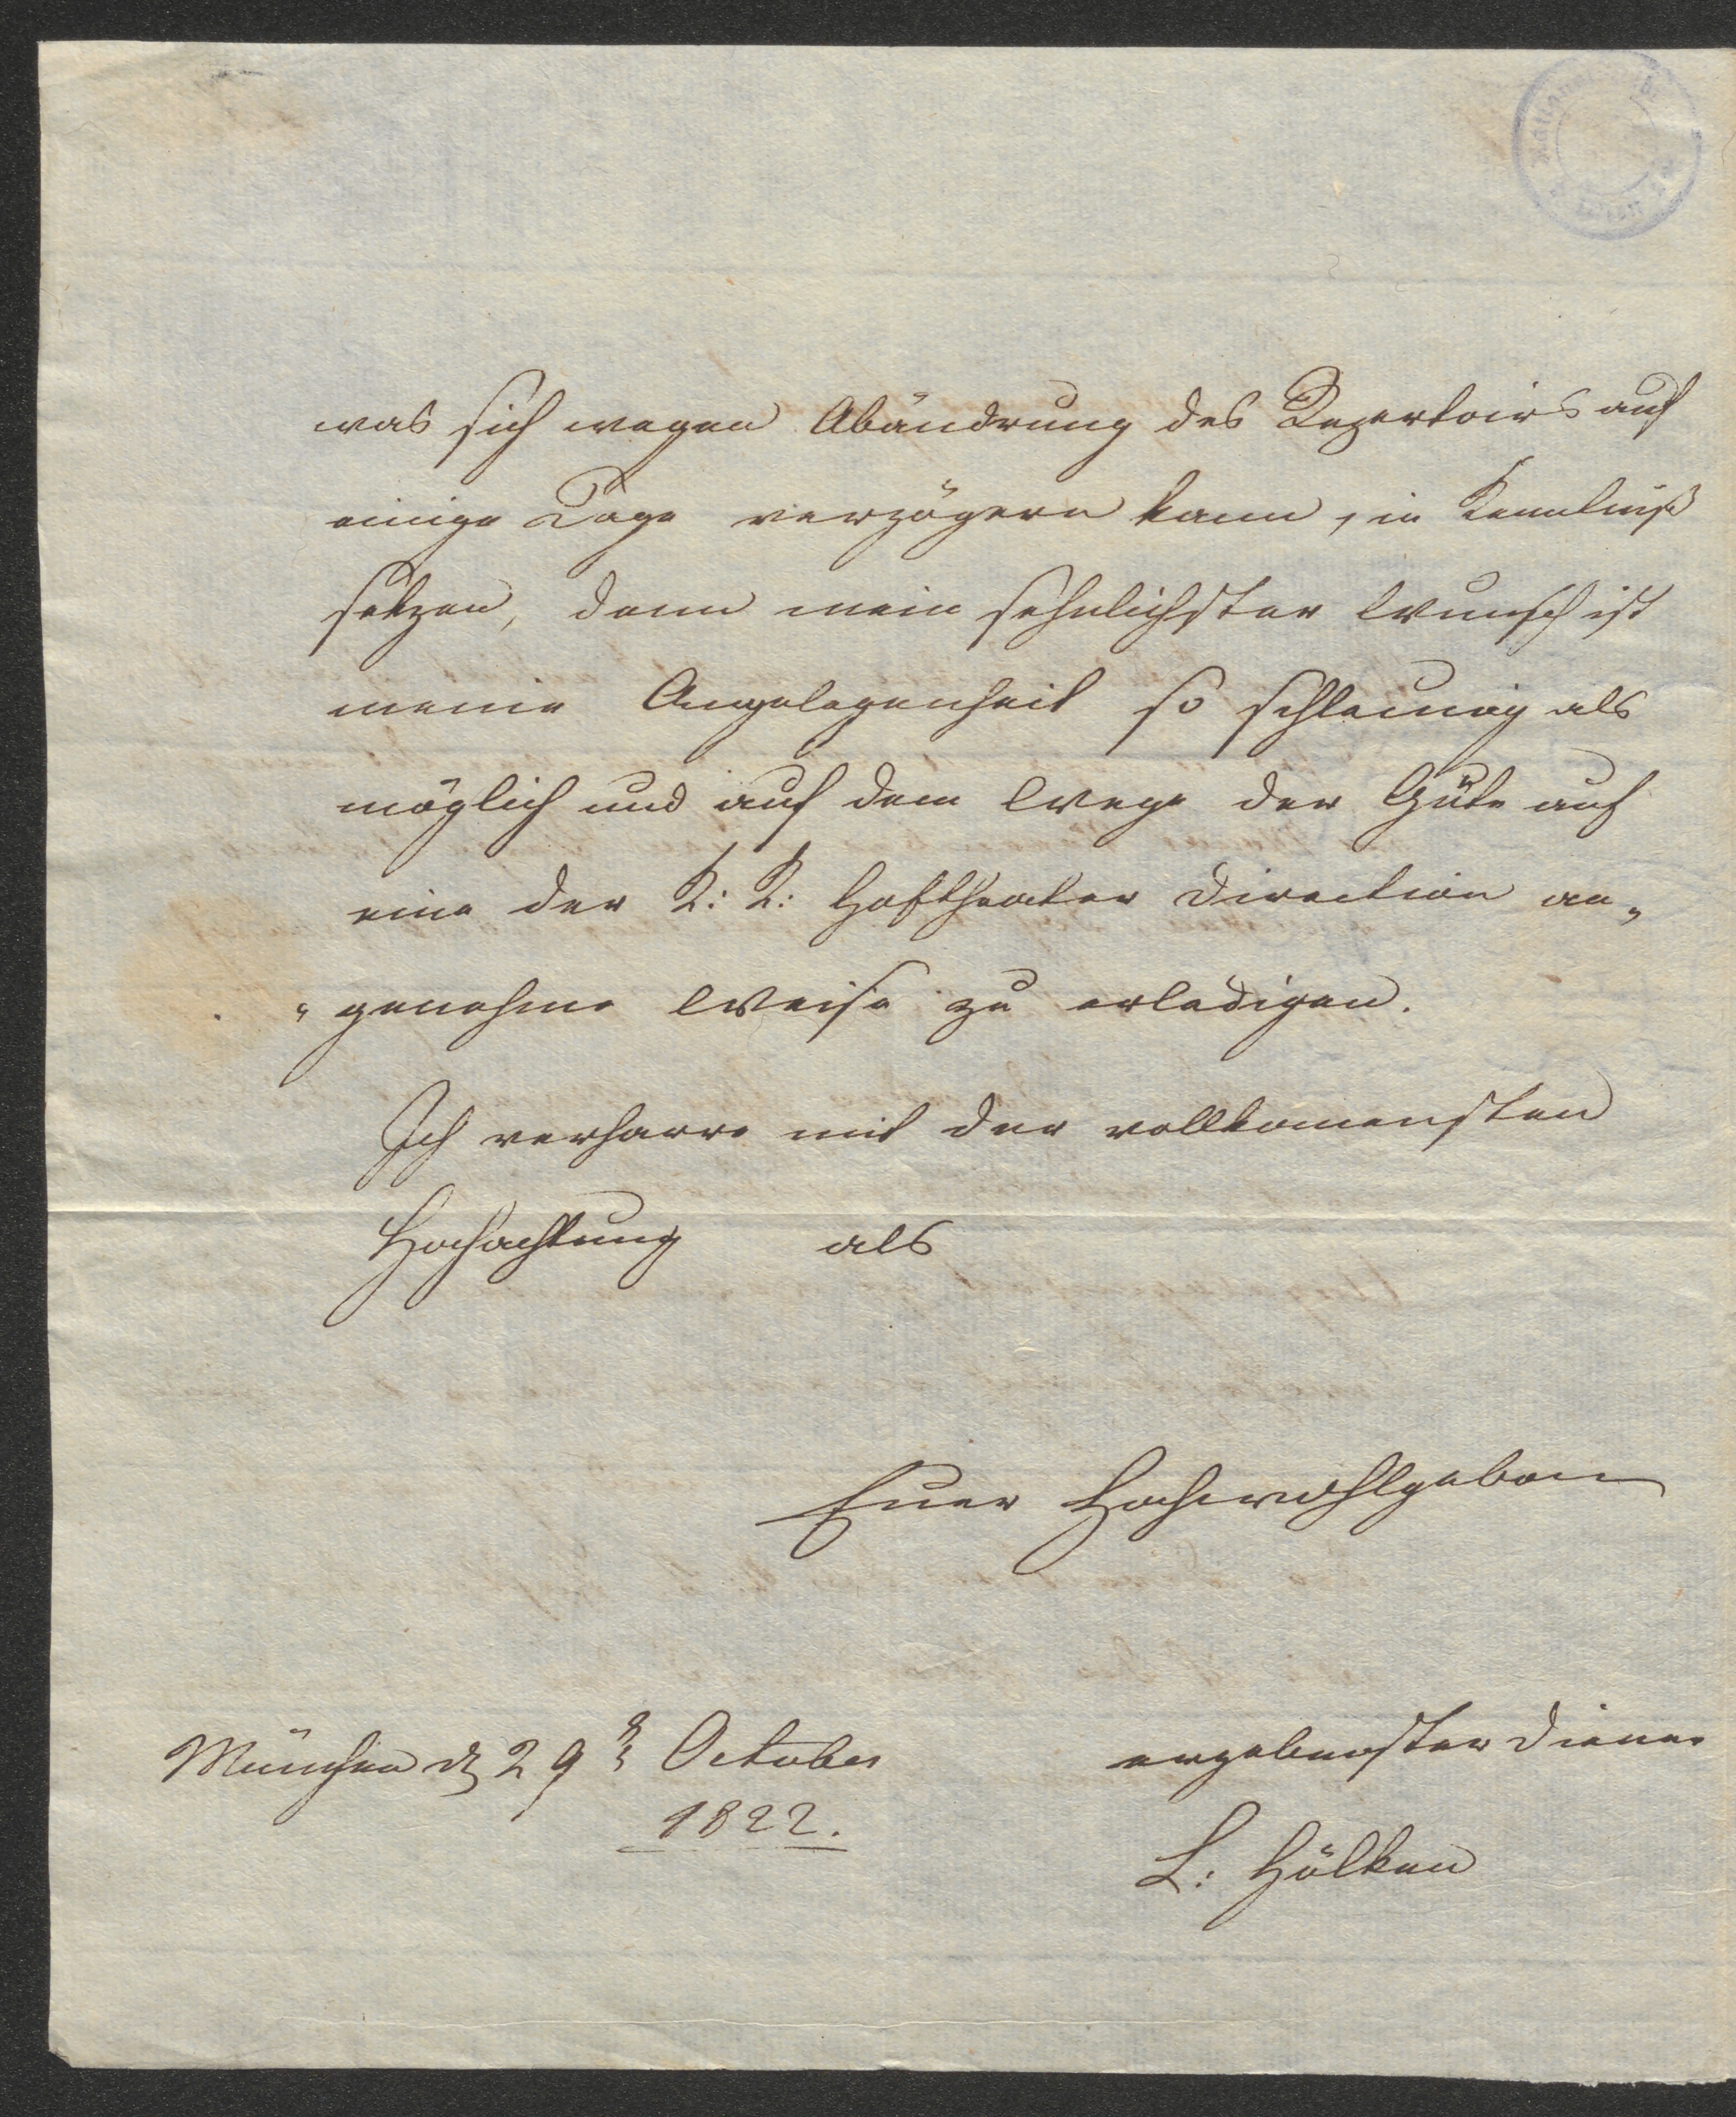 was sich wegen Abändrung des Repertoirs auf
einige Tage verzögern kann, in Kenntniß
setzen, denn mein sehnlichster Wunsch ist
meine Angelegenheit so schleunig als
möglich und auf dem Wege der Güte auf
eine der K: K: Hoftheater Direction an„
„genehme Weise zu erledigen.
Ich verharre mit der vollkomensten
Hochachtung als
Euer Hochwohlgeborn
München d 29 October
1822.
ergebenster Diener
L: Hölken